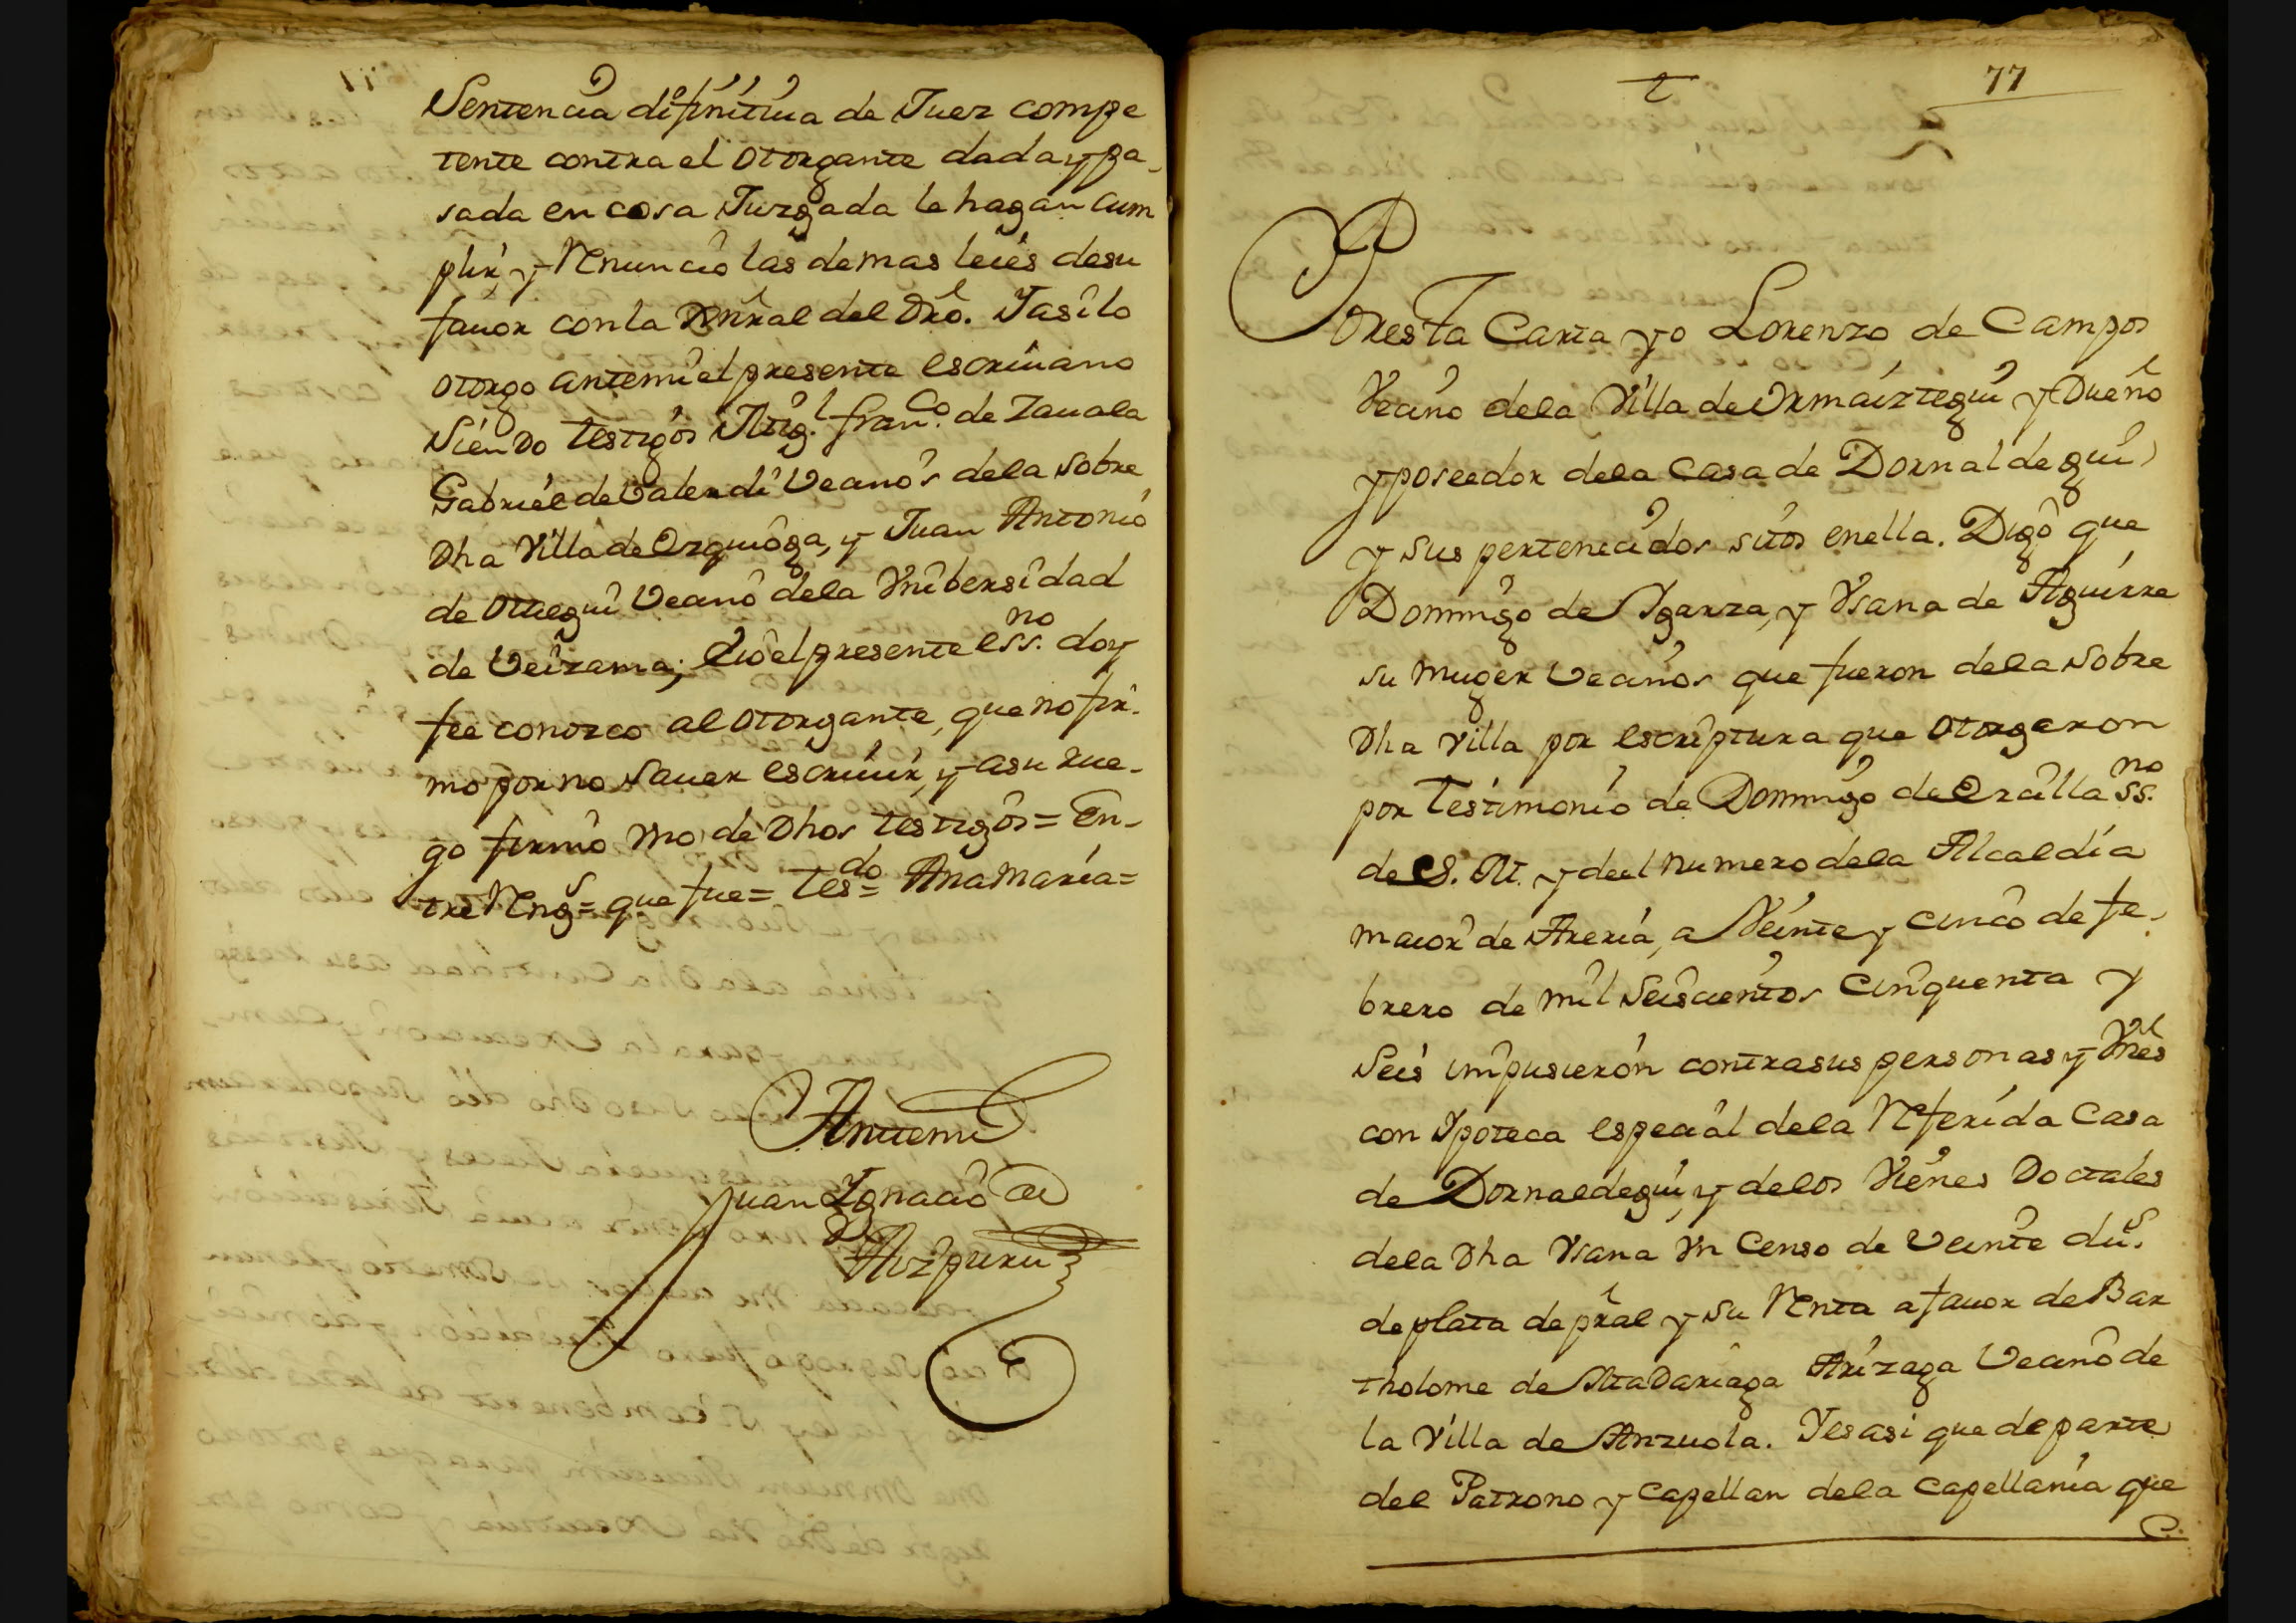 Sentencia difinitiua de Juez compe
tente contra el otorgante dada y pa-
sada en cosa Juzgada le hagan cum
plir, y Renuncio las demas leies de su
fauor con la Genˡral del dr̃o. Y asi lo
otorgo ante mi el presente escriuano
siendo testigos Mig.ˡ fran.ᶜᵒ de Zauala
Gabriel de Valerdi Vecinos de la sobre
dha Villa de Ezquioga, y Juan Antonio
de Otuegui Vecino de la Vnibersidad
de Veizama; E yo el presente ess.ⁿᵒ doy
fee conozco al otorgante, que no fir-
mo por no sauer escriuir, y a su rue-
go firmo vno de dhos testigos = En-
tre Rengˢ = que fue = tesᵈᵒ = Ana maria =
Ante mi
Juan Ignacio de
Aizpuru
77
Por esta Carta yo Lorenzo de Campos
Vecino de la Villa de Ormaiztegui y Dueño
y poseedor de la Casa de Dornaldegui
y sus pertenecidos sitos en ella. Digo que
Domingo de Igarza, y Vsana de Aguirre
su muger Vecinos que fueron de la sobre
dha villa por escriptura que otorgaron
por testimonio de Domingo de Orailla ss.ⁿᵒ
de S. M. y del numero de la Alcaldia
maior de Areria, a Veinte y cinco de fe-
brero de mil seiscientos cinquenta y
seis impusieron contra sus personas y Vnes
con Ypoteca especial de la Referida Casa
de Dornaldegui, y de los Vienes Dotales
de la dha Vsana Vn Censo de Veinte du.ˢ
de plata de prˡal y su Renta a fauor de Bar
tholome de Madariaga Arizaga Vecino de
la Villa de Anzuola. Y es asi que de parte
del Patrono y Capellan de la Capellania que